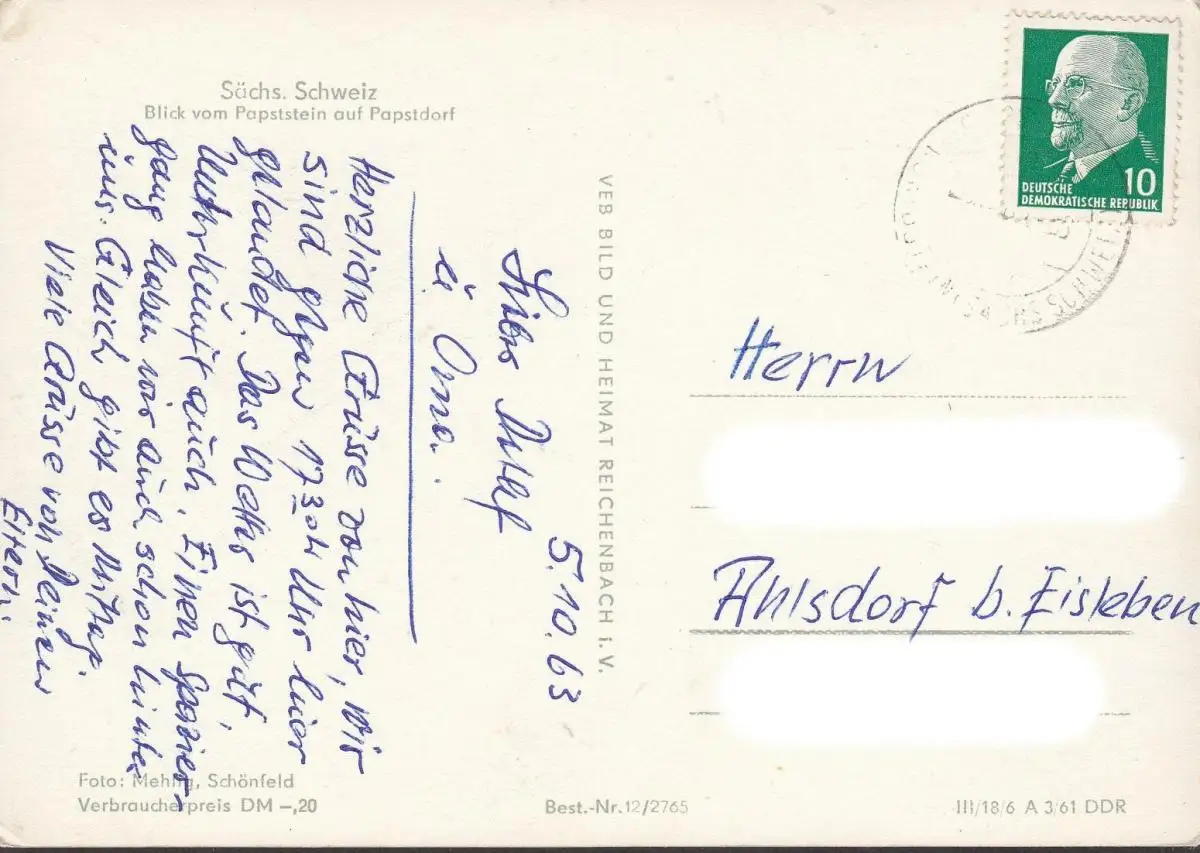 Sächs. Schweiz
Blick vom Papststein auf Papstdorf
5.10.63
Lieber Detlef
u. Oma.
Herzliche Grüsse von hier, Wir
sind gegen 17 30 Uhr hier
gelandet. Das Wetter ist gut,
Unterkunft auch. Einen Spazier-
gang haben wir auch schon hinter
uns. Gleich gibt es Mittag.
Viele Grüsse von Deinen
Eltern.
VEB BILD UND HEIMAT REICHENBACH i. V.
DEUTSCHE
DEMOKRATISCHE REPUBLIK
10
Herrn
Ahlsdorf b. Eisleben
Foto: Mehlig, Schönfeld
Verbraucherpreis DM –,20
Best.-Nr. 12/2765
III/18/6 A 3/61 DDR